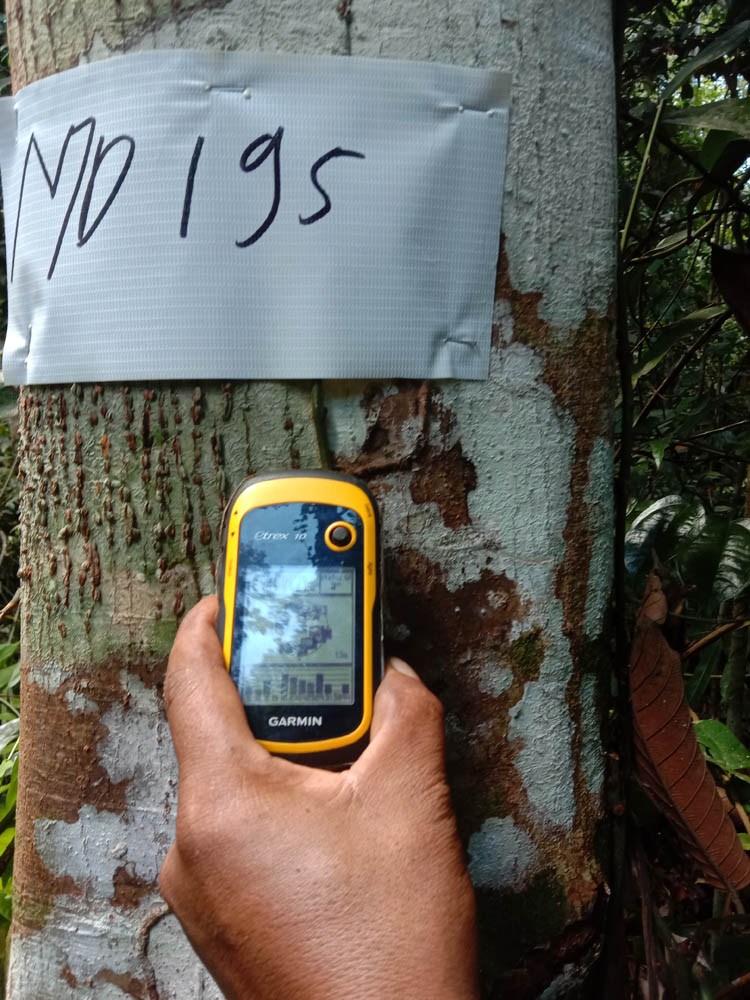 MD 195
etrex 10
GARMIN